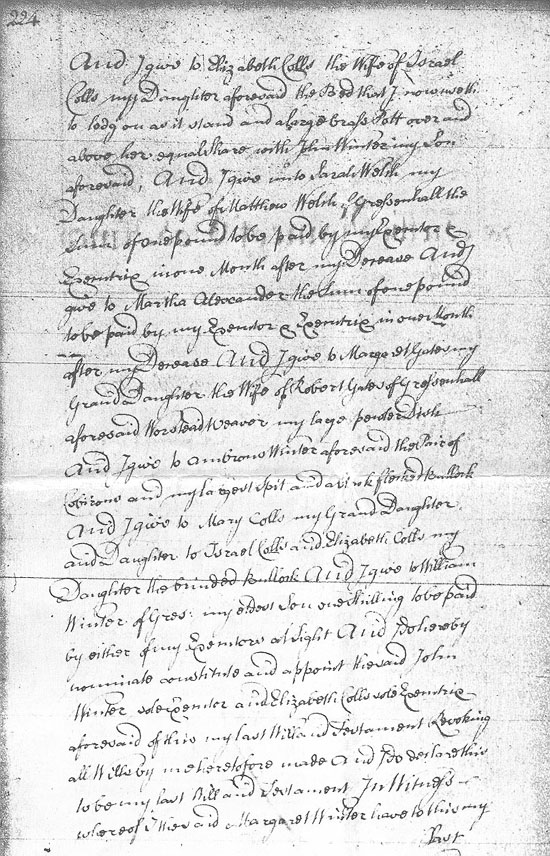 224
And I give to Elizabeth Colls the Wife of Israel
Colls my Daughter aforesaid the Bed that I now useth
to lodg on as it stand and a large brass Pott over and
above her equal share with John Winter my Son
aforesaid, And I give unto Sarah Welch my
Daughter the Wife of Matthew Welch of Gressenhall the
Sum of one pound to be paid by my Exemtor &
Exemtrix in one Month after my Decease And I
give to Martha Alexander the Sum of one pound
to be paid by my Exemtor & Exemtrix in one Month
after my Decease And I give to Margaret Gates my
Grand Daughter the Wife of Robert Gates of Gressenhall
aforesaid Worstead Weaver my large pewter Dish
And I give to Ambrous Winter aforesaid the Pair of
Cobirons and my largest Spit and a flecked Bullock
And I give to Mary Colls my Grand Daughter
and Daughter to Israel Colls and Elizabeth Colls my
Daughter the brinded Bullock And I give to William
Winter of Gres: my eldest Son one Shilling to be paid
by either of my Exemtors at Sight And I do hereby
nominate constitute and appoint the said John
Winter sole Exemtor and Elizabeth Colls sole Exemtrix
aforesaid of this my last Will and Testament Revoking
all Wills by me heretofore made And I do declare this
to be my last Will and Testament In Witness
whereof I the said Margaret Winter have to this my
Last